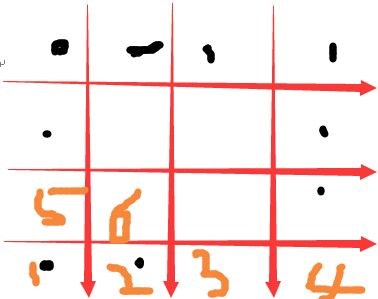 5 6
1 2 3 4